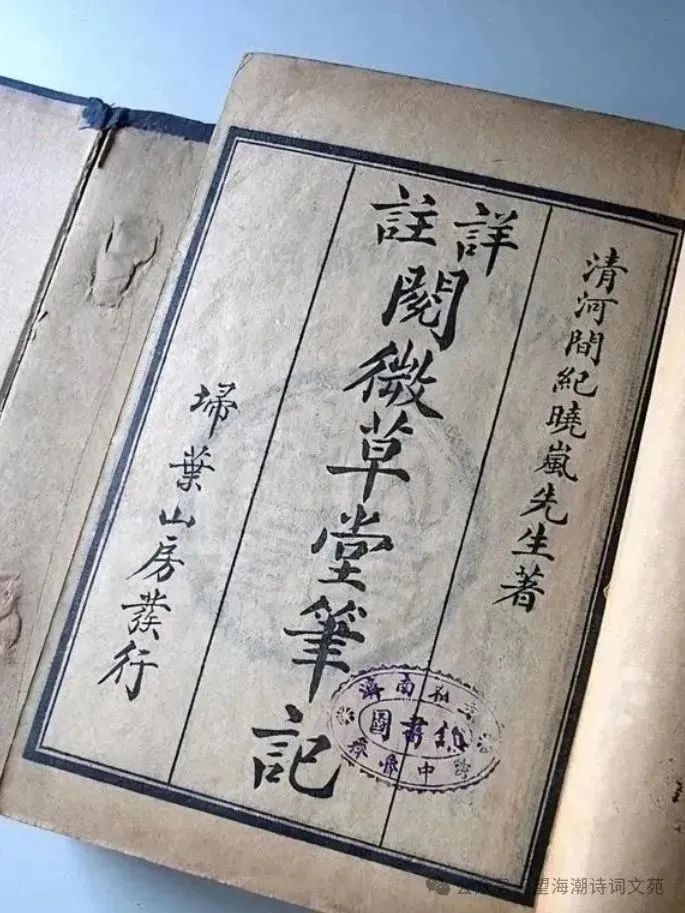 清河間紀曉嵐先生著
詳註
閱微草堂筆記
埽葉山房發行
濟南
圖書館
中
望海潮诗词文苑